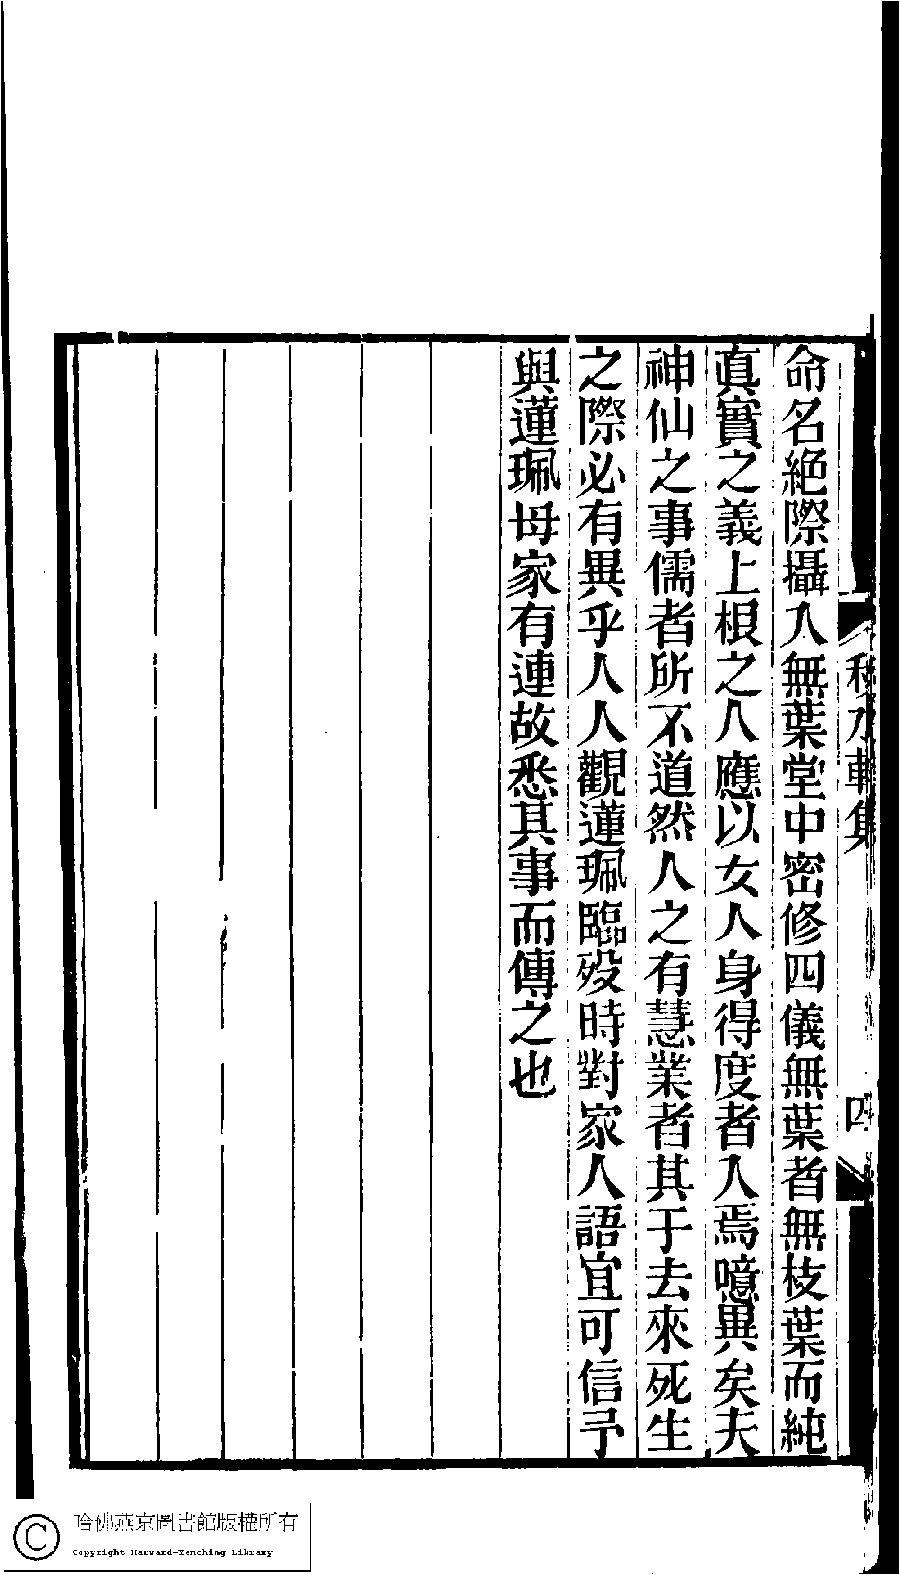 命名絕際攝入無葉堂中密修四儀無葉者無枝葉而純
真實之義上根之人應以女人身得度者入焉噫異矣夫
神仙之事儒者所不道然人之有慧業者其于去來死生
之際必有異乎人人觀蓮珮臨歿時對家人語宜可信予
與蓮珮母家有連故悉其事而傳之也
水軒集
四
哈佛燕京圖書館版權所有
Copyright Harvard-Yenching Library